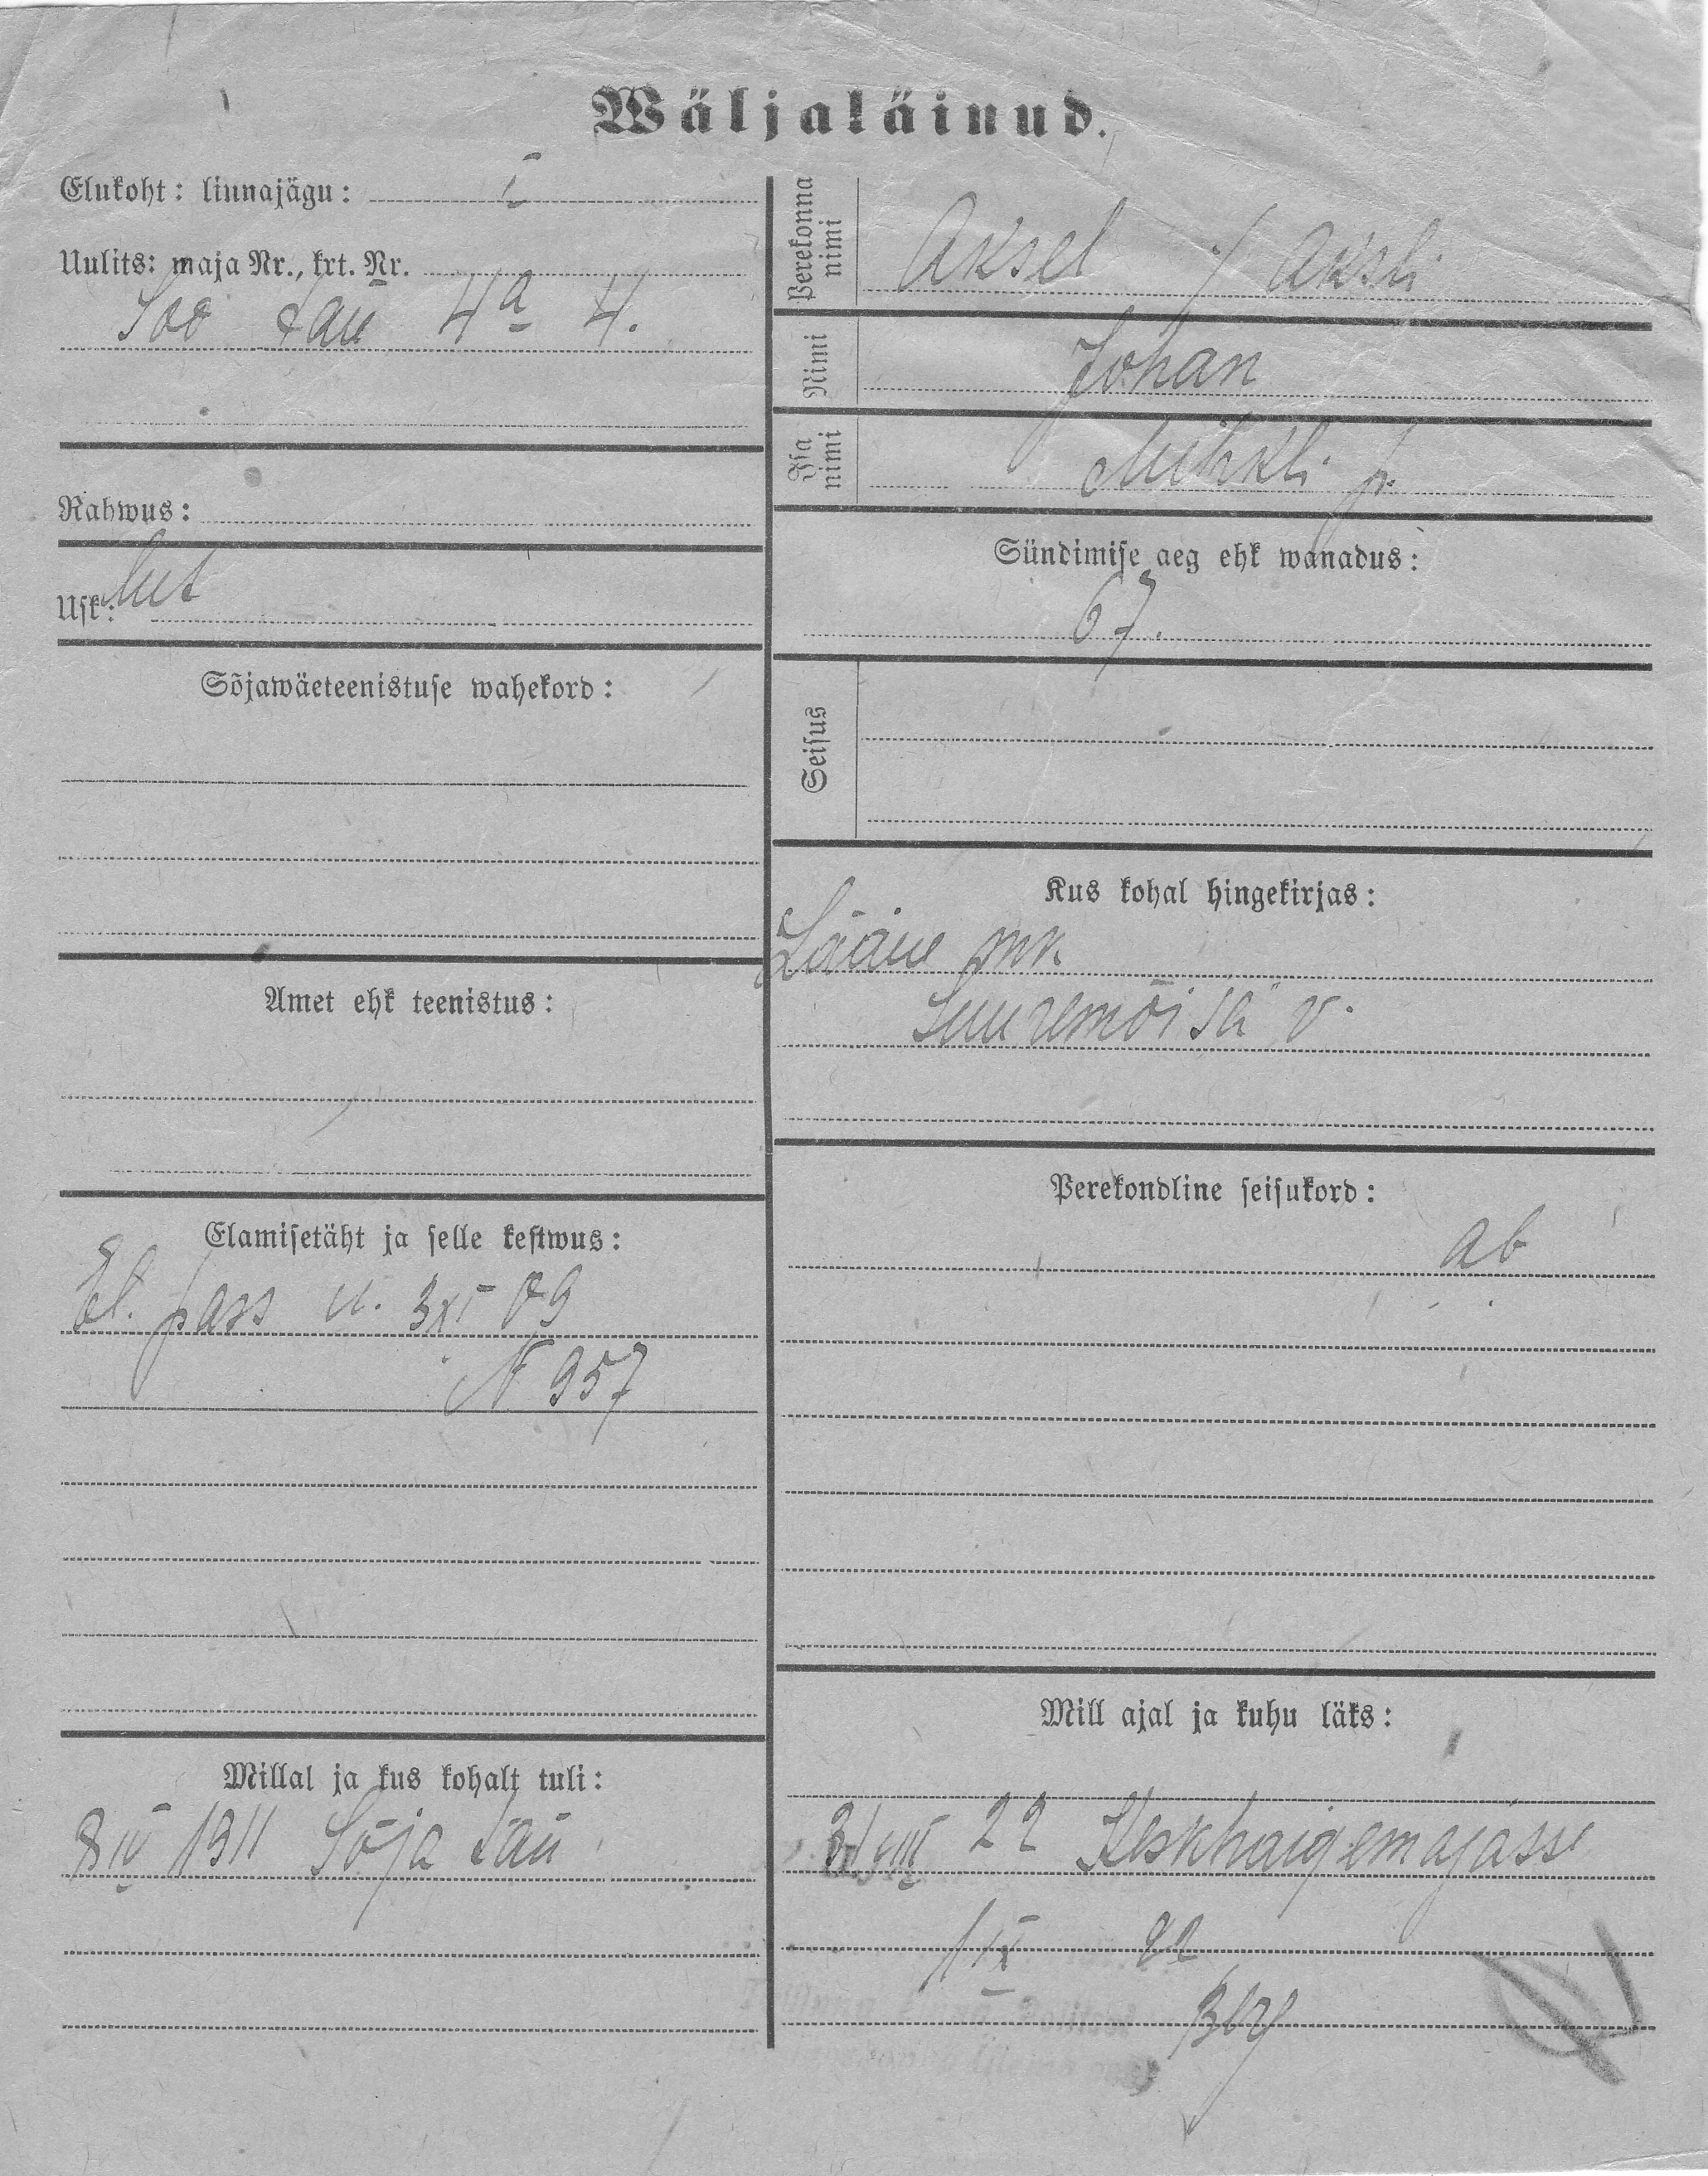 Wäljaläinud.
Elukoht: linnajägu: I
Uulits: maja Nr., krt. Nr.
Soo tän 4a 4.
Rahwus:
Usk: lut
Sõjawäeteenistuse wahekord:
Amet ehk teenistus:
Elamisetäht ja selle kestwus:
El. pass u. 3 XI 09
N 957
Millal ja kus kohalt tuli:
8 IV 1911 Sõja tän
Perekonna nimi Aksel / Aksli
Nimi Johan
Isa nimi Mihkli p.
Sündimise aeg ehk wanadus:
67.
Seisus
Kus kohal hingekirjas:
Lääne mk.
Suuremõisa v.
Perekondline seisukord:
ab
Mill ajal ja kuhu läks:
31 VIII 22 Keskhaigemajasse
1 IX 22